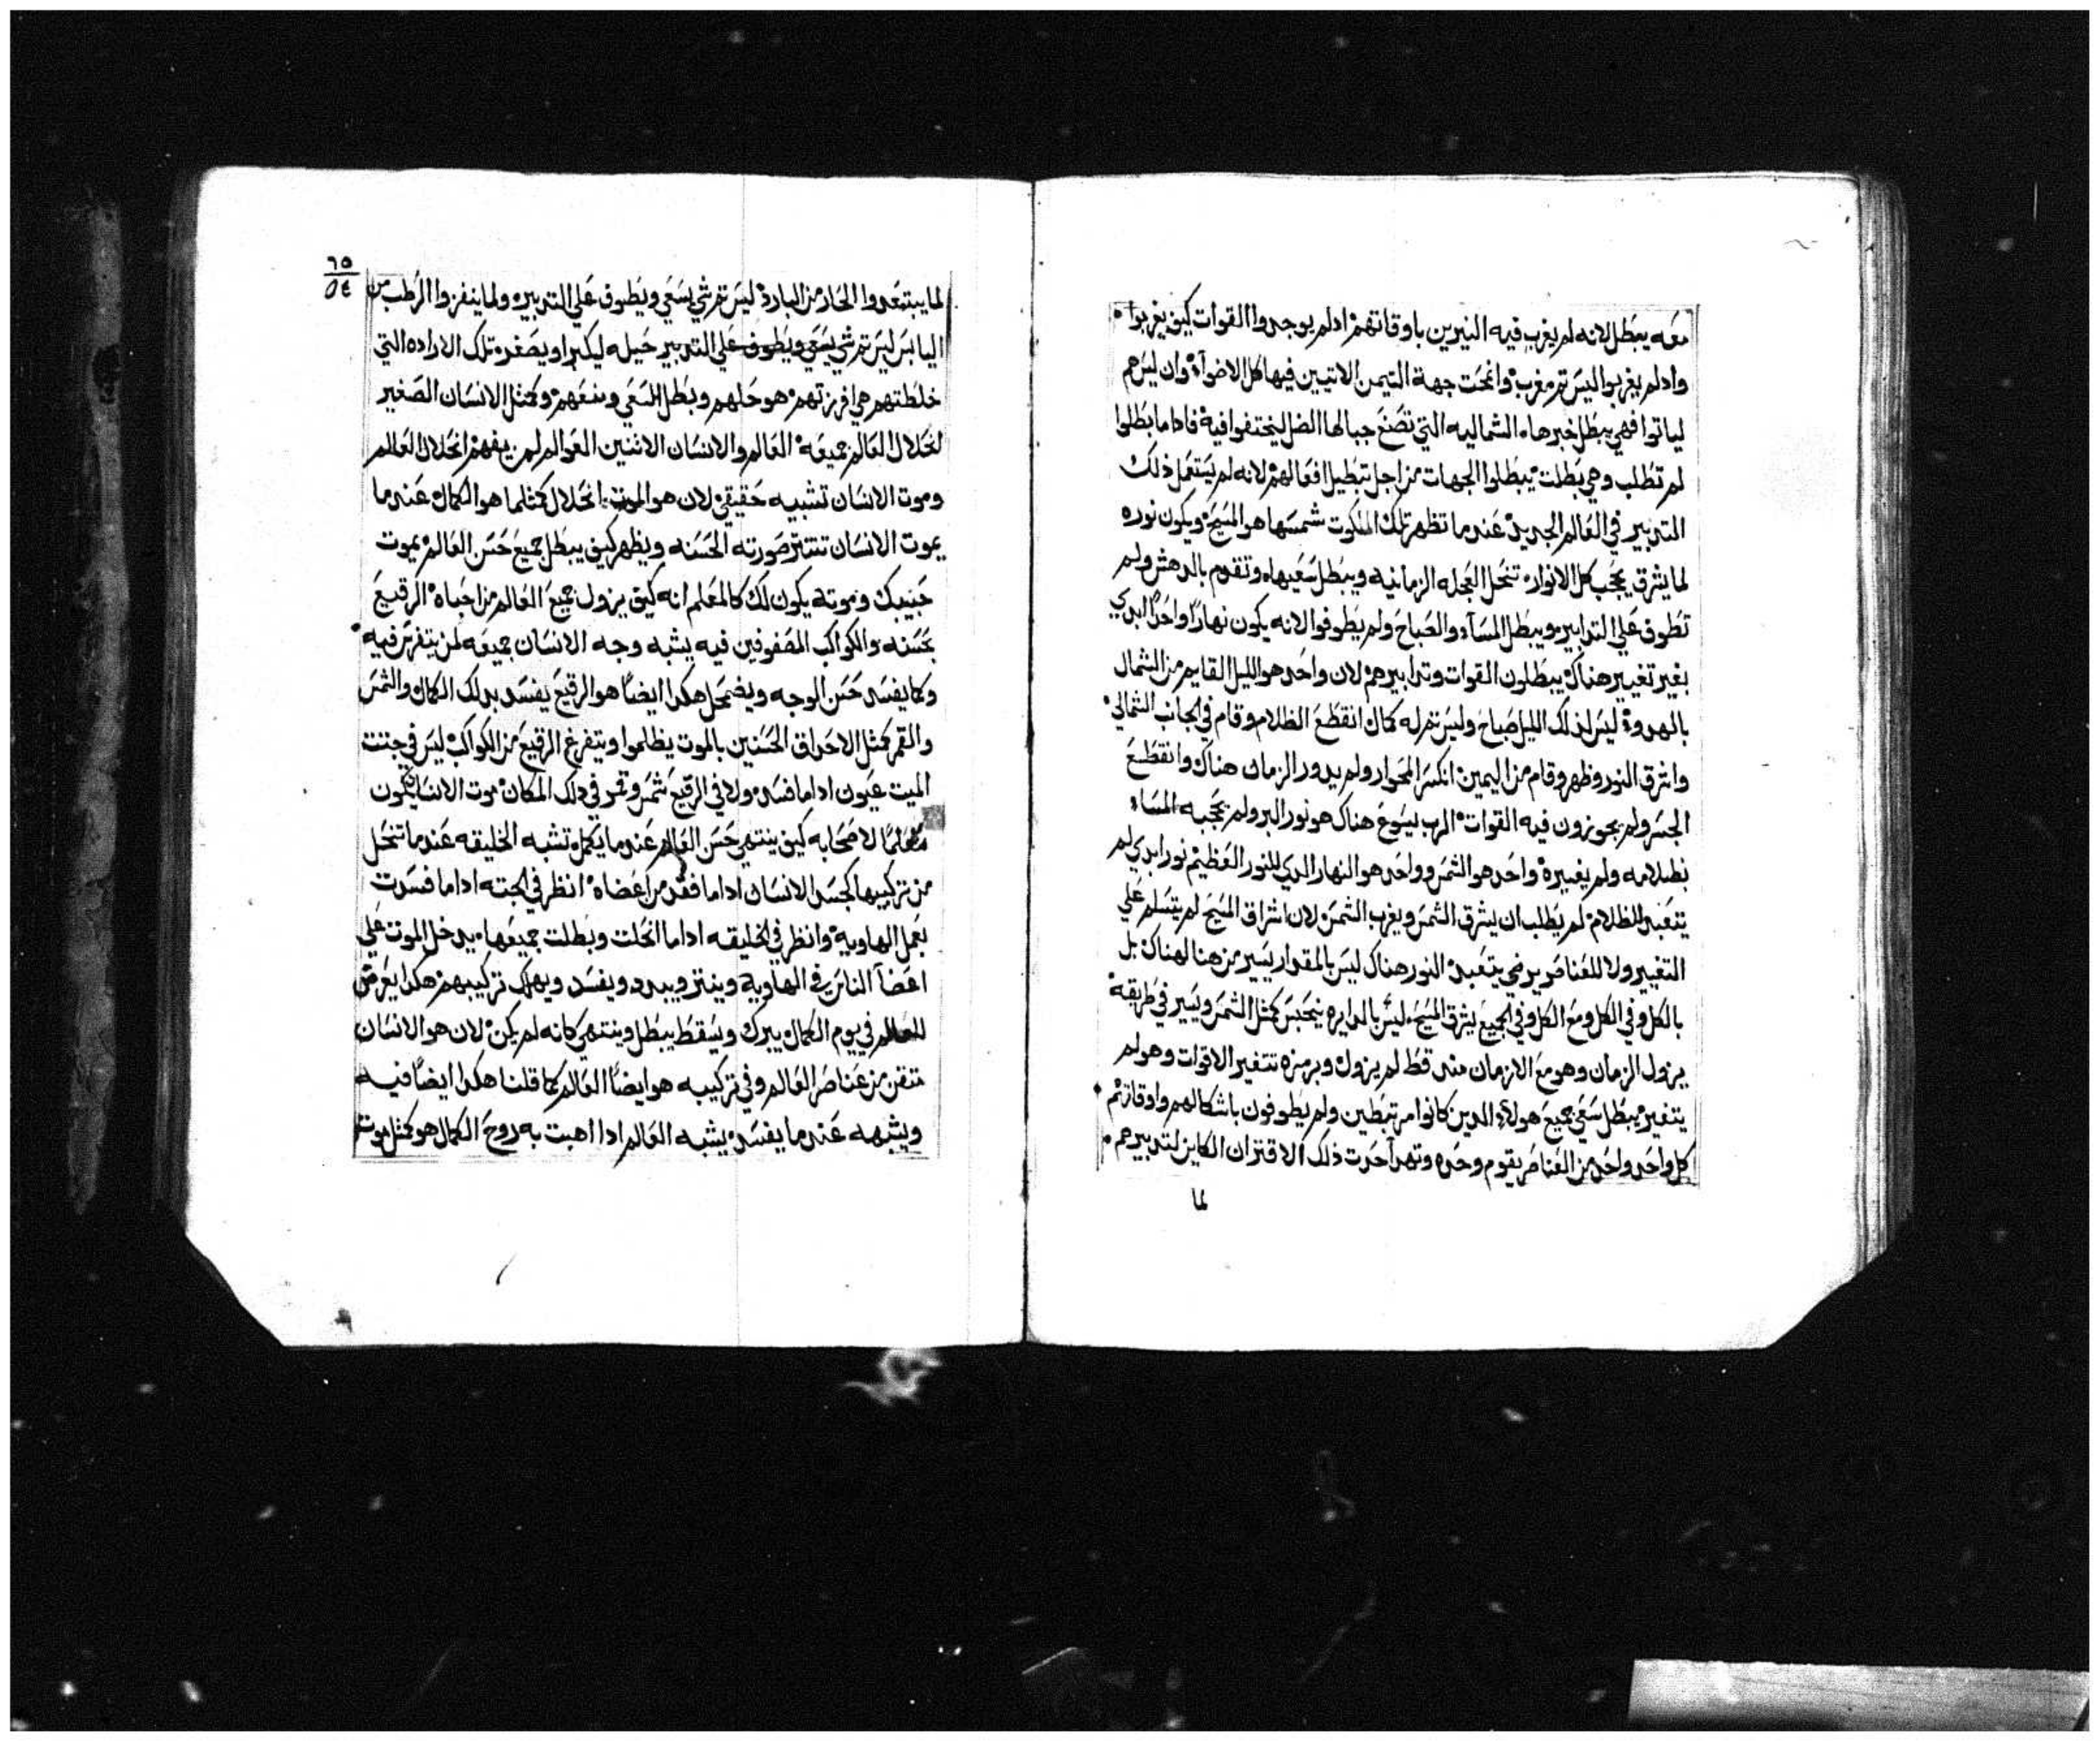 معه يبطل لانه لم يغرب فيه النيرين باوقاتهم ادلم يوجدوا القوات كيف يغربوا
وادلم يغربوا ليس تم مغرب وانمحت جهة التيمن الاتيين فيها كل الاضوآء وان ليس هم
لياتوا فهي يبطل خبرها الشماليه التي تصنع جبالها الضل ليختفوا فيه فاداما بطلوا
لم تطلب وهي بطلت يبطلوا الجهات من اجل تبطيل افعالهم لانه لم يستعمل ذلك
التدبير في العالم الجديد عندما تظهر تلك الملكوت شمسها هو المسيح ويكون نوره
لما يشرق يحجب كل الانوار تنحل العجله الزمانيه ويبطل سعيها وتقوم بالدهش ولم
تطوف علي التدابير ويبطل المسآء والصباح ولم يطوفوا لانه يكون نهارا واحدا ابدي
بغير تغيير هناك يبطلون القوات وتدابيرهم لان واحد هو الليل القايم من الشمال
بالهدوء ليس لذلك الليل صباح وليس تم له كمال انقطع الظلام وقام في الجانب الشمالي
واشرق النور وظهر وقام من اليمين انكسر المحوار ولم يدور الزمان هناك وانقطع
الجسر ولم يجوزون فيه القوات المرب يسوع هناك هو نور البر ولم يحجبه المساء
بظلامه ولم يغيره واحد هو الشمس وواحد هو النهار الدي للنور العظيم نور ابدي لم
يتعبد للظلام لم يطلب ان يشرق الشمس ويغرب الشمس لان اشراق المسيح لم يتسلم علي
التغيير ولا للعناصر يرضي يتعبد النور هناك ليس بالمقدار يسير من هنا لهناك بل
بالكل وفي الكل ومع الكل وفي الجميع يشرق المسيح ليس بالدايره ينحبس كمثل الشمس ويسير في طريقة
يزول الزمان وهو مع الازمان منه قط لم يزول وبرمزه تتغير الاقوات وهو لم
يتغير يبطل سعي جميع هولاء الدين كانوا مرتبطين ولم يطوفون باشكالهم واوقاتهم
كل واحد واحد من العناصر يقوم وحده وتهدآ حدت ذلك الاقتران الكاين لتدبيرهم
لما
٦٥
٥٤
لما يبتعدوا الحار من البارد ليس تم شي يسعي ويطوف علي التدبير ولما ينفرزوا الرطب من
اليابس ليس تم شي يسعي ويطوف علي التدبير حيله ليكبر او يصغر تلك الاراده التي
خلطتهم هي افرزتهم هو حلهم وبطل السعي ومنعهم وكمثل الانسان الصغير
انحلال العالم جميعه العالم والانسان الاثنين العوالم لمن يفهم انحلال العالم
وموت الانسان تشبيه حقيقي لان هو الموت انحلال كمثلما هو الكمال عندما
يموت الانسان تستتر صورته الحسنه ويظهر كيف يبطل جميع حسن العالم يموت
حبيبك وموته يكون لك كالمعلم انه كيف يزول جميع العالم من احباه الرقيع
بحسنه والكواكب المصفوفين فيه يشبه وجه الانسان جميعه لمن يتفرس فيه
وكما يفسد حسن الوجه ويضمحل هكدا ايضا هو الرقيع يفسد بدلك الكمال والشمس
والقمر كمثل الاحداق الحسنين بالموت يظلموا ويتفرغ الرقيع من الكواكب ليس في جتت
الميت عيون اداما فسد ولا في الرقيع شمس وقمر في دلك المكان موت الانسان يكون
معلما لاصحابه كيف ينتهي حسن العالم عندما يكمل تشبه الخليقه عندما تنحل
من تركيبها كجسد الانسان اداما فقد من اعضاه انظر في الجته اداما فسدت
بعمل الهاوية وانظر في الخليقه اداما انحلت وبطلت جميعها يدخل الموت علي
اعضآ الناس في الهاوية وينتر ويبدد ويفسد ويهلك تركيبهم هكدا يعرض
للعالم في يوم الكمال يبرك ويسقط يبطل وينتهي كانه لم يكن لان هو الانسان
متقن من عناصر العالم وفي تركيبه هو ايضا العالم كما قلنا هكدا ايضا فيه
ويشبهه عندما يفسد يشبه العالم ادا اهبت به روح الكمال هو كمثل موت